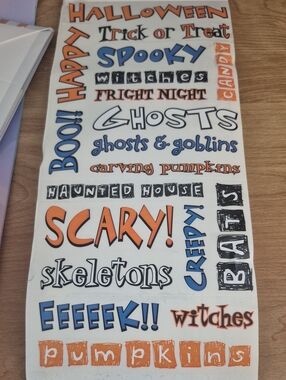 HAPPY HALLOWEEN
Trick or Treat
SPOOKY
witches
CANDY
FRIGHT NIGHT
BOO!!
GHOSTS
ghosts & goblins
carving pumpkins
HAUNTED HOUSE
SCARY!
CREEPY!
BATS
skeletons
EEEEEK!!
witches
pumpkins